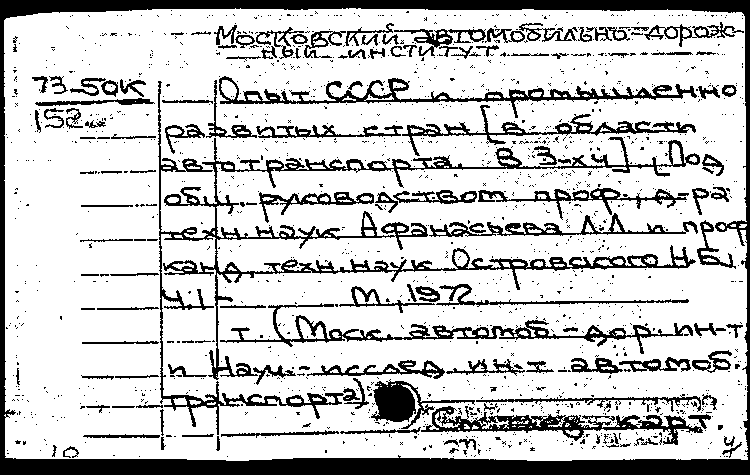 Московский автомобильно-дорож-
ный институт.
73-50к
152
Опыт СССР и промышленно
развитых стран [в области
автотранспорта. В 3-х ч]. [Под
общ. руководством проф., д-ра
техн. наук Афанасьева Л.Л и проф
канд. техн. наук Островского Н.Б.].
Ч.1- М., 1972
т. (Моск. автомоб.-дор. ин-т
и Науч.-исслед. ин-т автомоб.
транспорта)
См. след. карт.